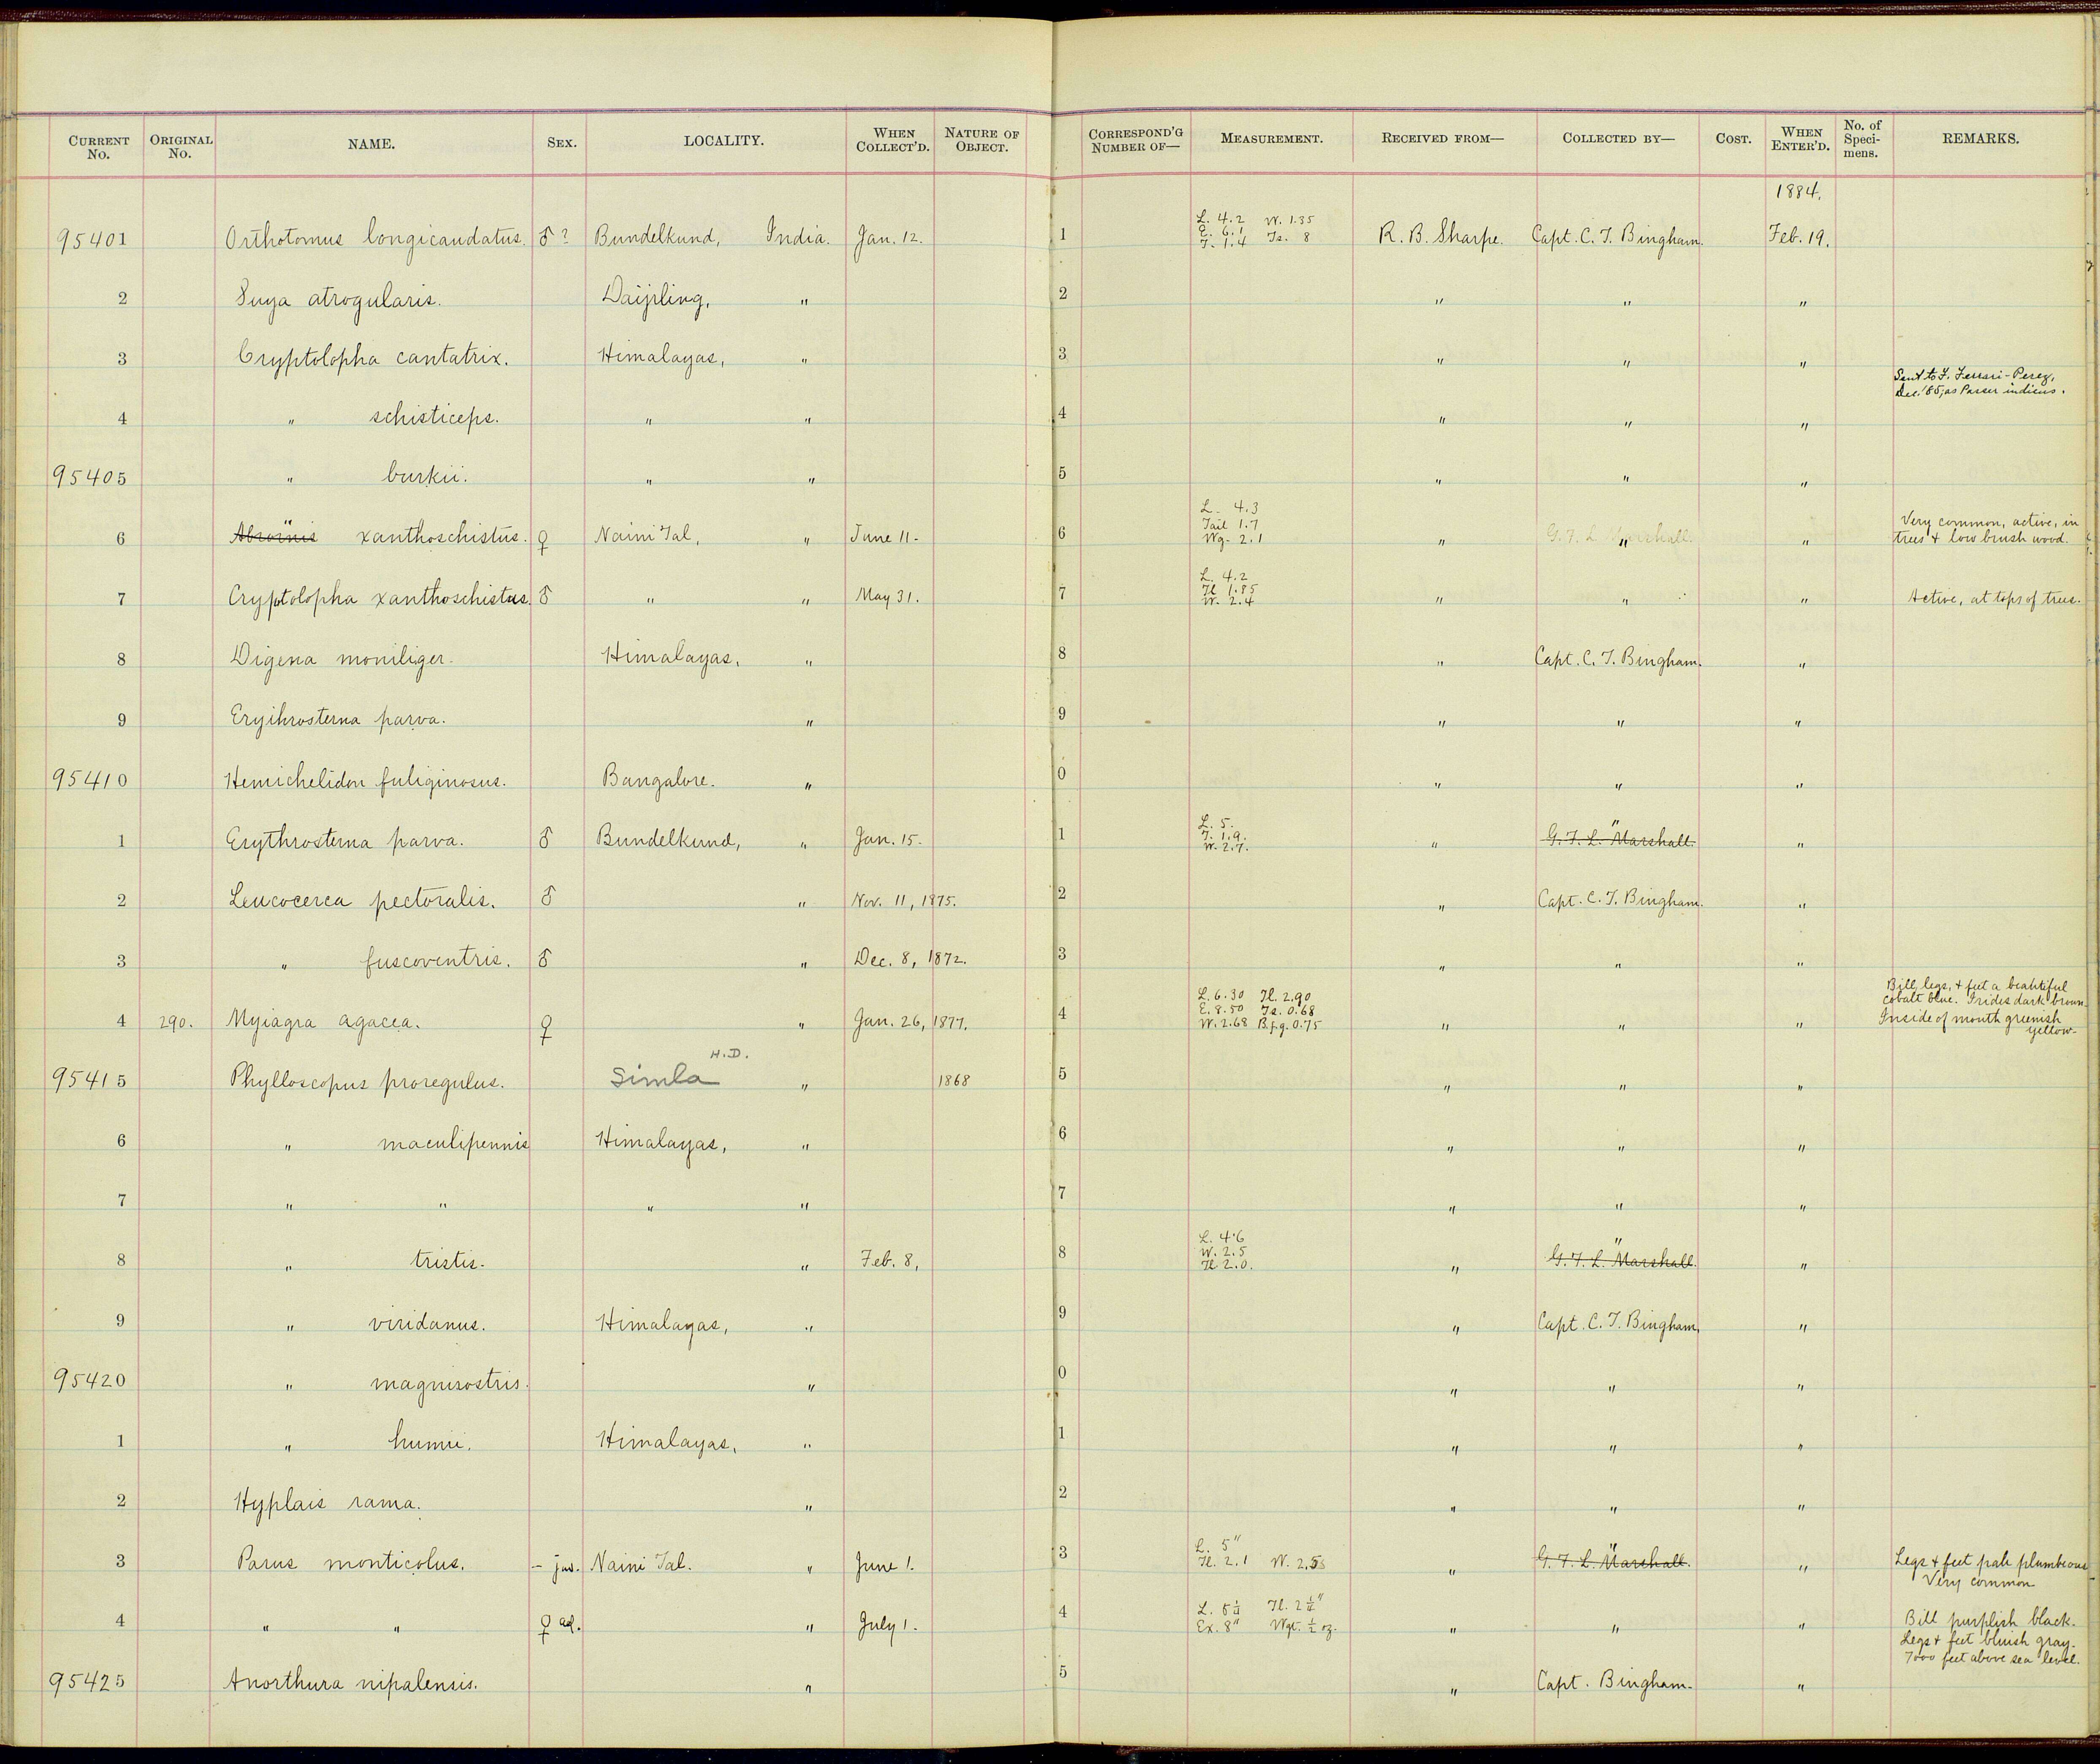 CURRENT No. ORIGINAL No. NAME. SEX. LOCALITY. WHEN COLLECT'D. NATURE OF OBJECT. CORRESPOND'G NUMBER OF— MEASUREMENT. RECEIVED FROM— COLLECTED BY— COST. WHEN ENTER'D. No. of Specimens. REMARKS.
1884.
95401 Orthotomus longicaudatus. ♂? Bundelkund, India. Jan. 12. 1 L. 4.2 W. 1.85 E. 6.1 T. 1.4 Ts. 8 R. B. Sharpe. Capt. C. T. Bingham. Feb. 19.
2 Suya atrogularis. Daijpling, " 2 " " "
3 Cryptolopha cantatrix. Himalayas, " 3 " " "
Sent to F. Ferrari-Perez,
Dec. '85, as Passer indicus.
4 " schisticeps. " " 4 " " "
95405 " burkii. " " 5 " " "
6 Abrornis " xanthoschistus. ♀ Naini Tal, " June 11. 6 L. 4.3 Tail 1.7 Wg. 2.1 " G. F. L. Marshall " " Very common, active, in trees & low brush wood.
7 Cryptolopha xanthoschistus. ♂ " " May 31. 7 L. 4.2 Tl 1.85 W. 2.4 " " " Active, at tops of trees.
8 Digena moniliger. Himalayas, " 8 " Capt. C. T. Bingham. "
9 Erythrosterna parva. " 9 " " "
95410 Hemichelidon fuliginosus. Bangalore. " 0 " " "
1 Erythrosterna parva. ♂ Bundelkund, " Jan. 15. 1 L. 5. T. 1.9. W. 2.7. " G. F. L. Marshall. " "
2 Leucocerca pectoralis. ♂ " Nov. 11, 1875. 2 " Capt. C. T. Bingham. "
3 " fuscoventris. ♂ " Dec. 8, 1872. 3 " " "
4 290. Myiagra azurea. ♀ " Jan. 26, 1877. 4 L. 6.30 Tl. 2.90 E. 8.50 Ts. 0.68 W. 2.68 B.f.g. 0.75 " " " Bill, legs, & feet a beautiful cobalt blue. Irides dark brown. Inside of mouth greenish yellow.
H.D.
95415 Phylloscopus proregulus. Simla " 1868 5 " " "
6 " maculipennis Himalayas, " 6 " " "
7 " " " " 7 " " "
8 " tristis. " Feb. 8, 8 L. 4.6 W. 2.5 Tl 2.0. " G. F. L. Marshall. " "
9 " viridanus. Himalayas, " 9 " Capt. C. T. Bingham, "
95420 " magnirostris. " 0 " " "
1 " humii. Himalayas, " 1 " " "
2 Hyplais rama. " 2 " " "
3 Parus monticolus. – juv. Naini Tal. " June 1. 3 L. 5" Tl. 2.1 W. 2.55 " G. F. L. Marshall. " " Legs & feet pale plumbeous Very common
4 " " ♀ ad. " July 1. 4 L. 5¼ Tl. 2¼" Ex. 8" Wgt. ½ oz. " " " Bill purplish black. Legs & feet bluish gray. 7000 feet above sea level.
95425 Anorthura nipalensis. " 5 " Capt. Bingham. "